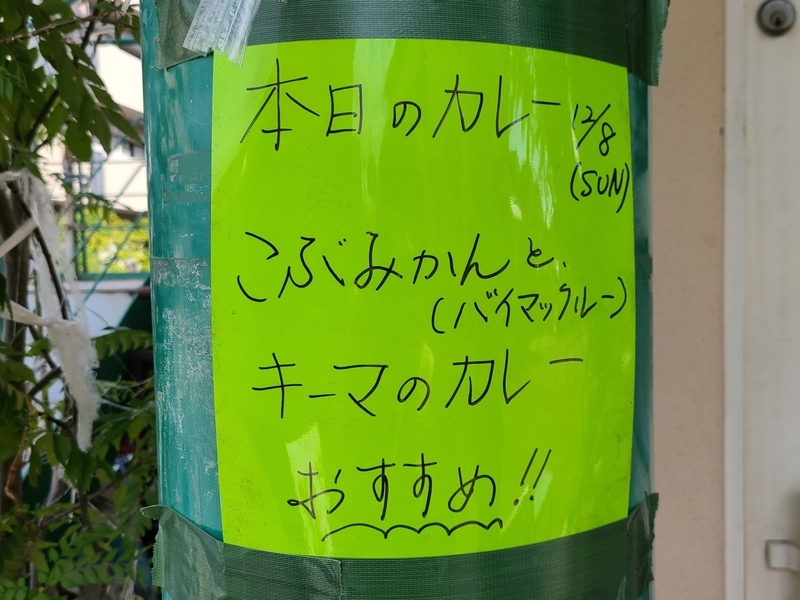 本日のカレー 12/8
(SUN)
こぶみかんと、
(バイマックルー)
キーマのカレー
おすすめ!!